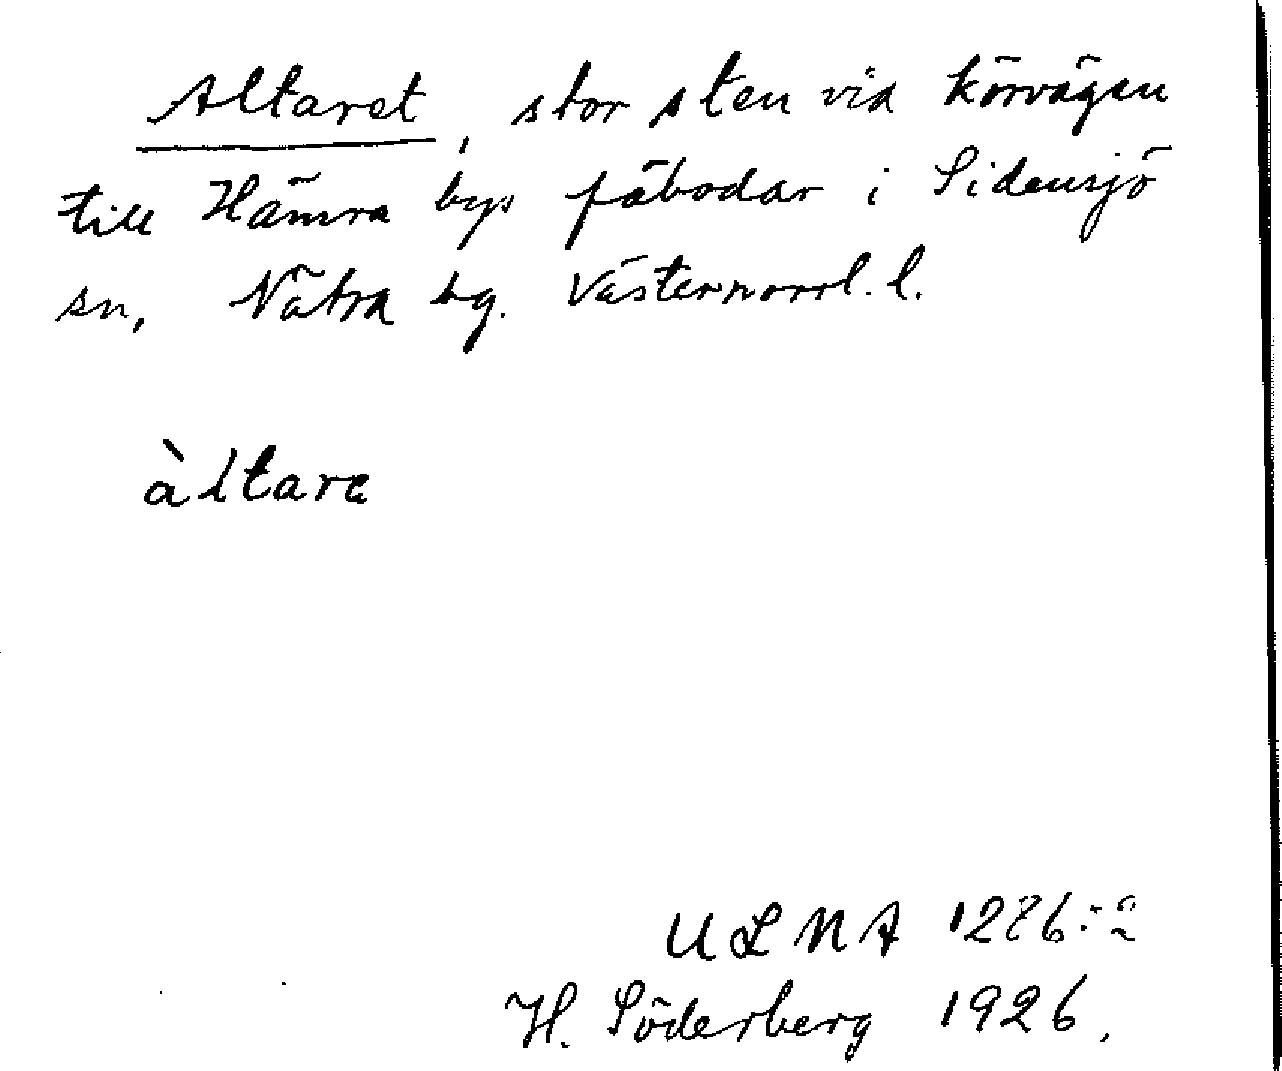 Altaret, stor sten vid körvägen
till Hämra bys fäbodar i Sidensjö
sn, Nätra hg. Västernorrl. l.
àltara
ULMA
H. Söderberg 1926.